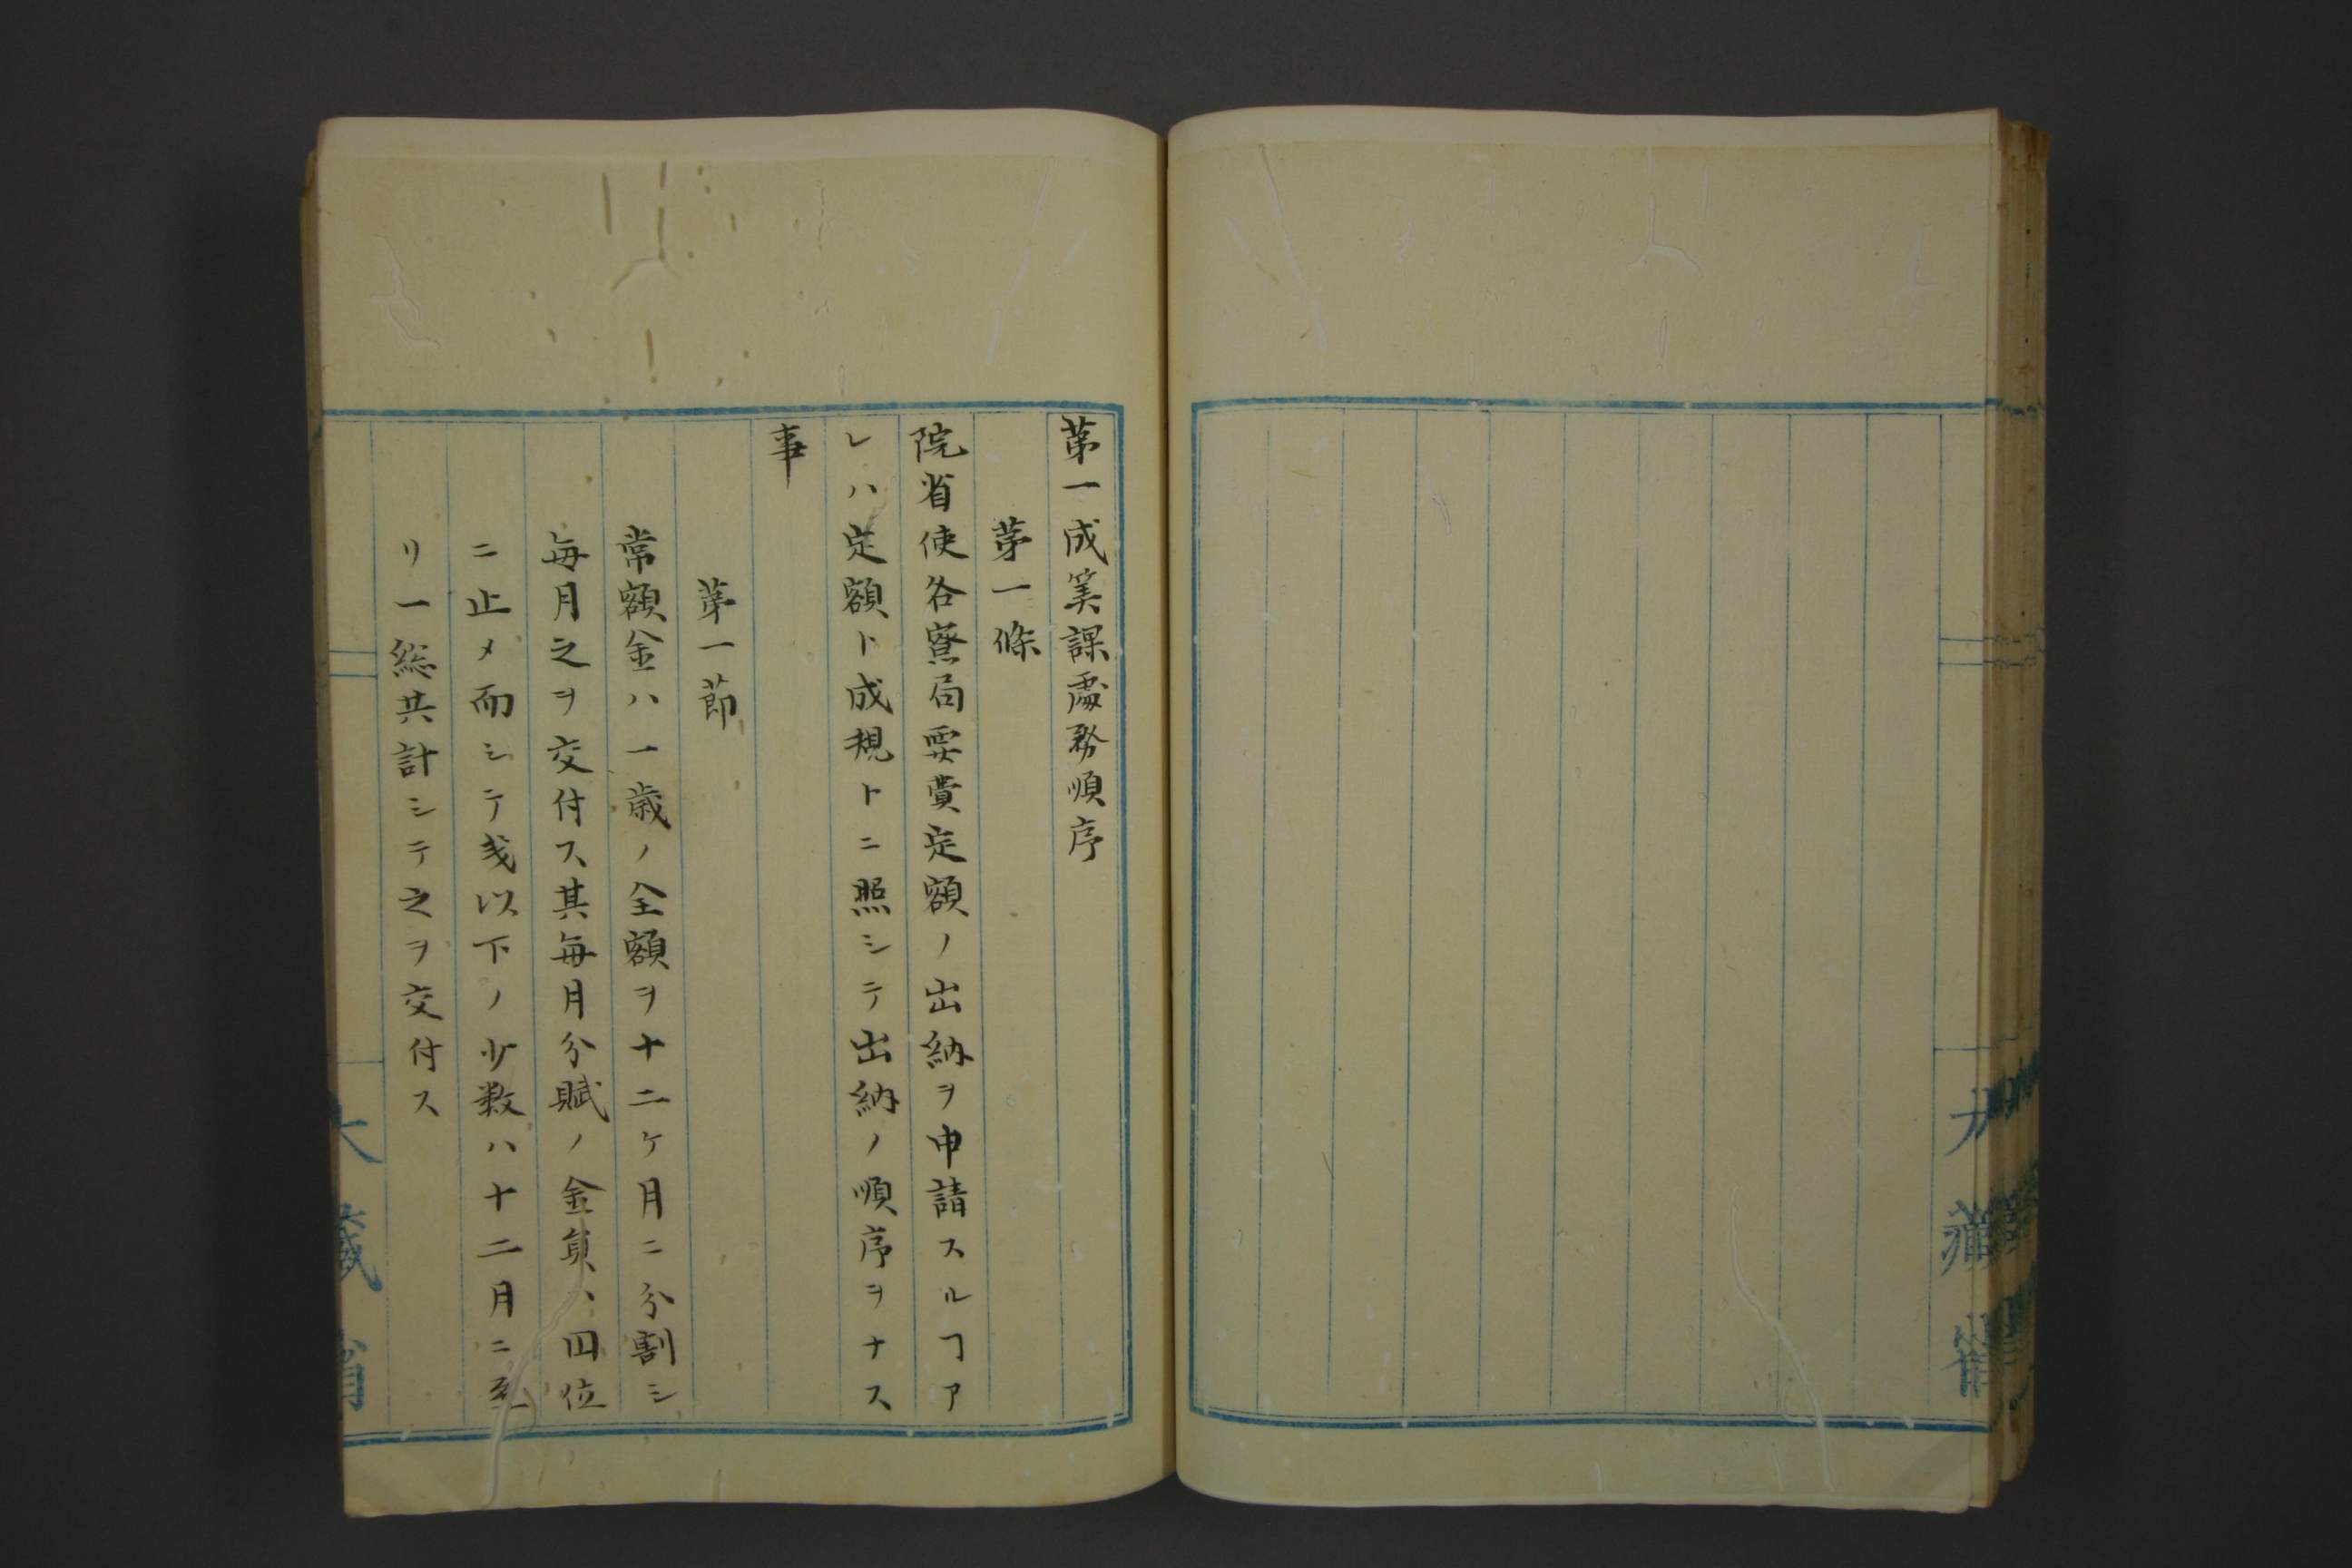 第一成筭課處務順序
第一條
院省使各寮局要費定額ノ出納ヲ申請スルヿア
レハ定額ト成規トニ照シテ出納ノ順序ヲナス
事
第一節
常額金ハ一歳ノ全額ヲ十二ケ月ニ分割シ
毎月之ヲ交付ス其毎月分賦ノ金員ハ四位
ニ止メ而シテ戔以下ノ少数ハ十二月ニ至
リ一総共計シテ之ヲ交付ス
大藏省
大藏省